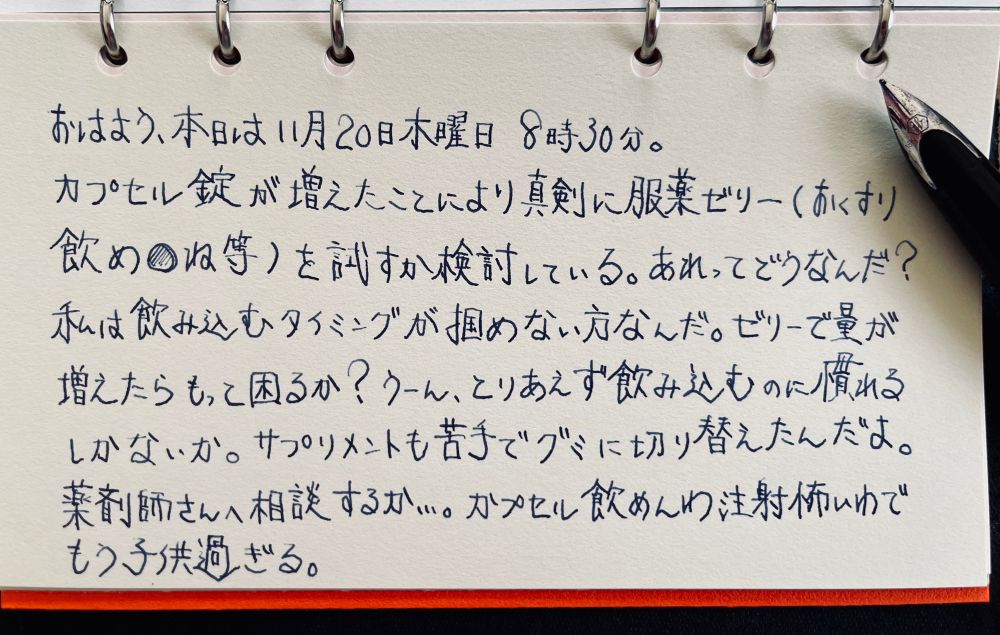 おはよう、本日は11月20日木曜日 8時30分。
カプセル錠が増えたことにより真剣に服薬ゼリー(おくすり
飲め●ね等)を試すか検討している。あれってどうなんだ?
私は飲み込むタイミングが掴めない方なんだ。ゼリーで量が
増えたらもっと困るか?うーん、とりあえず飲み込むのに慣れる
しかないか。サプリメントも苦手でグミに切り替えたんだよ。
薬剤師さんへ相談するか…。カプセル飲めんわ注射怖いわで
もう子供過ぎる。